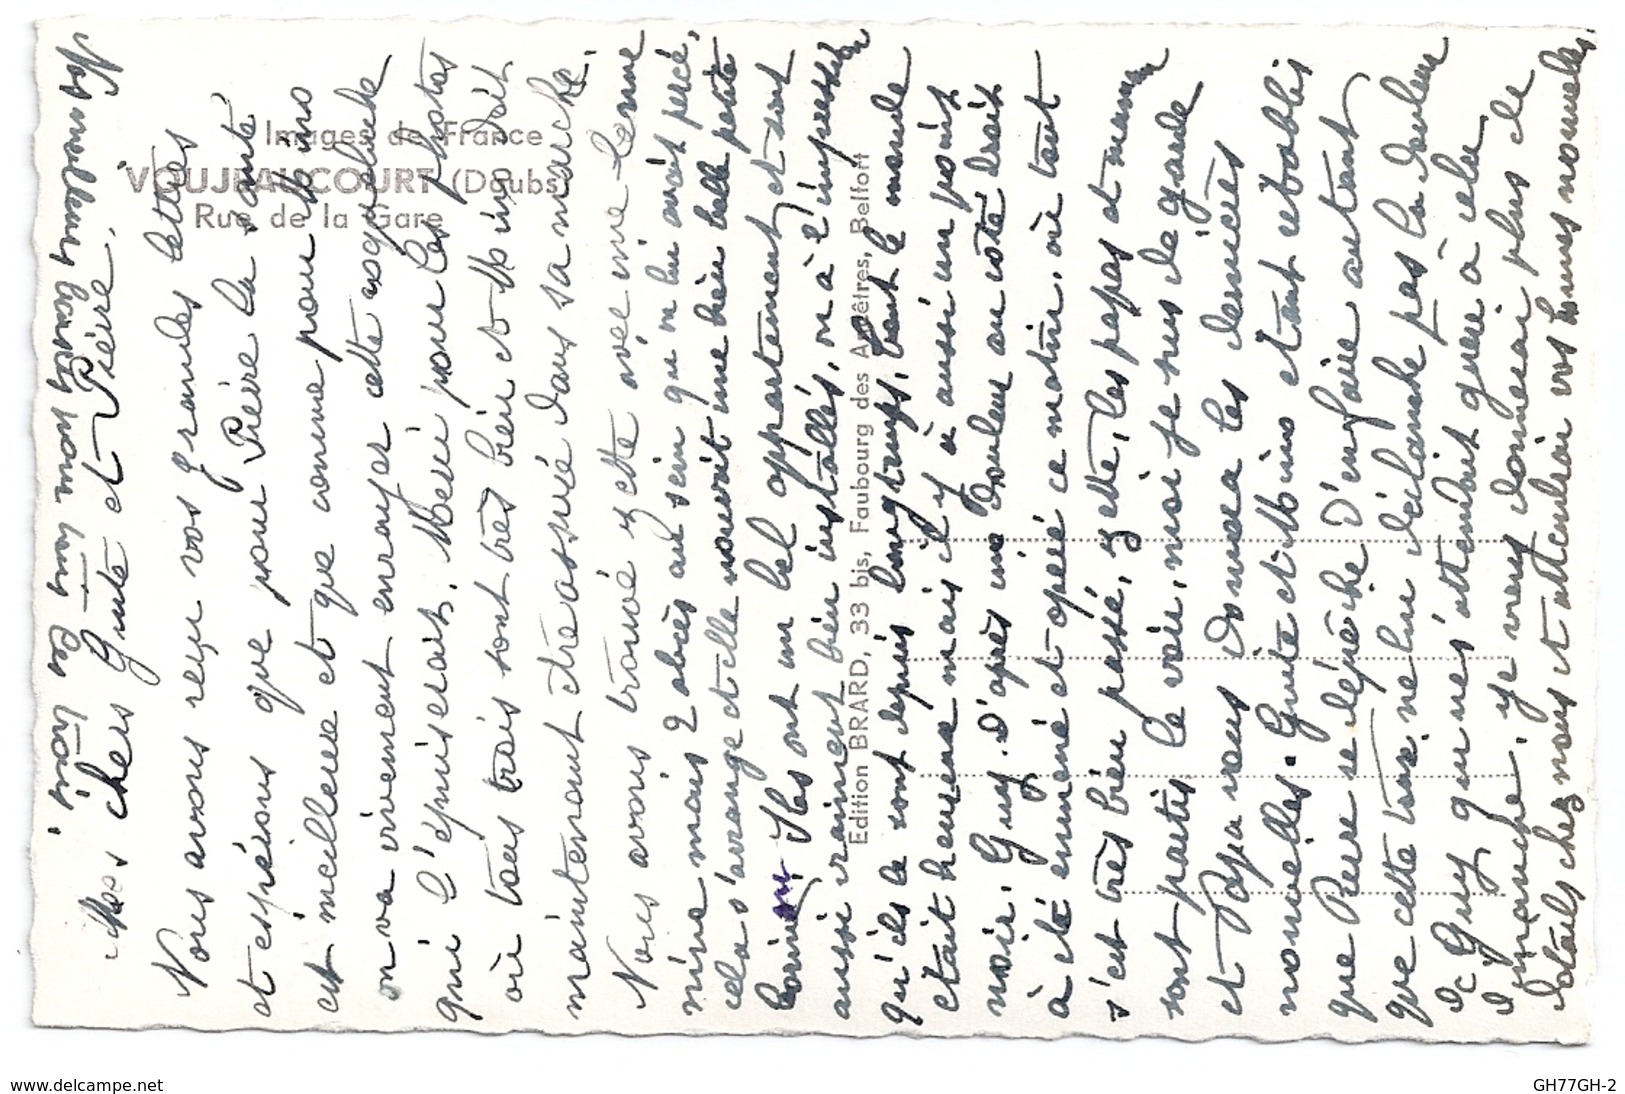 Images de France
VOUJEAUCOURT (Doubs)
Rue de la Gare
Edition BRARD, 33 bis, Faubourg des Ancêtres, Belfort
Nos meilleurs baisers pour vous les trois.
Mes chers Guite et Pierre,
Nous avons reçu vos grandes lettres
et espérons que pour Pierre la santé
est meilleure et que comme pour Mino
on va vivement enrayer cette
qui l'épuiserait. Merci pour les photos
où tous trois sont très bien et Mino doit
maintenant être assurée dans sa marche.
Nous avons trouvé Yette avec une bonne
mine mais 2 abcès au sein qu'on lui avait percé,
cela s'arrange et elle nourrit une bien belle petite
Ils ont un bel appartement et sont
aussi vraiment bien installés, on a l'impression
qu'ils le sont depuis longtemps, tout le monde
était heureux mais il y a aussi un point
noir: Guy. D'après une douleur au côté droit
a été emmené et opéré ce matin, où tout
s'est très bien passé, Yette, les papas et maman
sont partis le voir, moi je suis de garde
et Papa vous donnera les dernières
nouvelles. Guite et Mino étant rétablis
que Pierre se dépêche d'en faire autant
que cette toux ne lui déclanche pas la douleur
de Guy qui ne s'attendait guère à cela
Dimanche, je vous donnerai plus de
détails chez nous et attendrai vos bonnes nouvelles.
www.delcampe.net
GH77GH-2